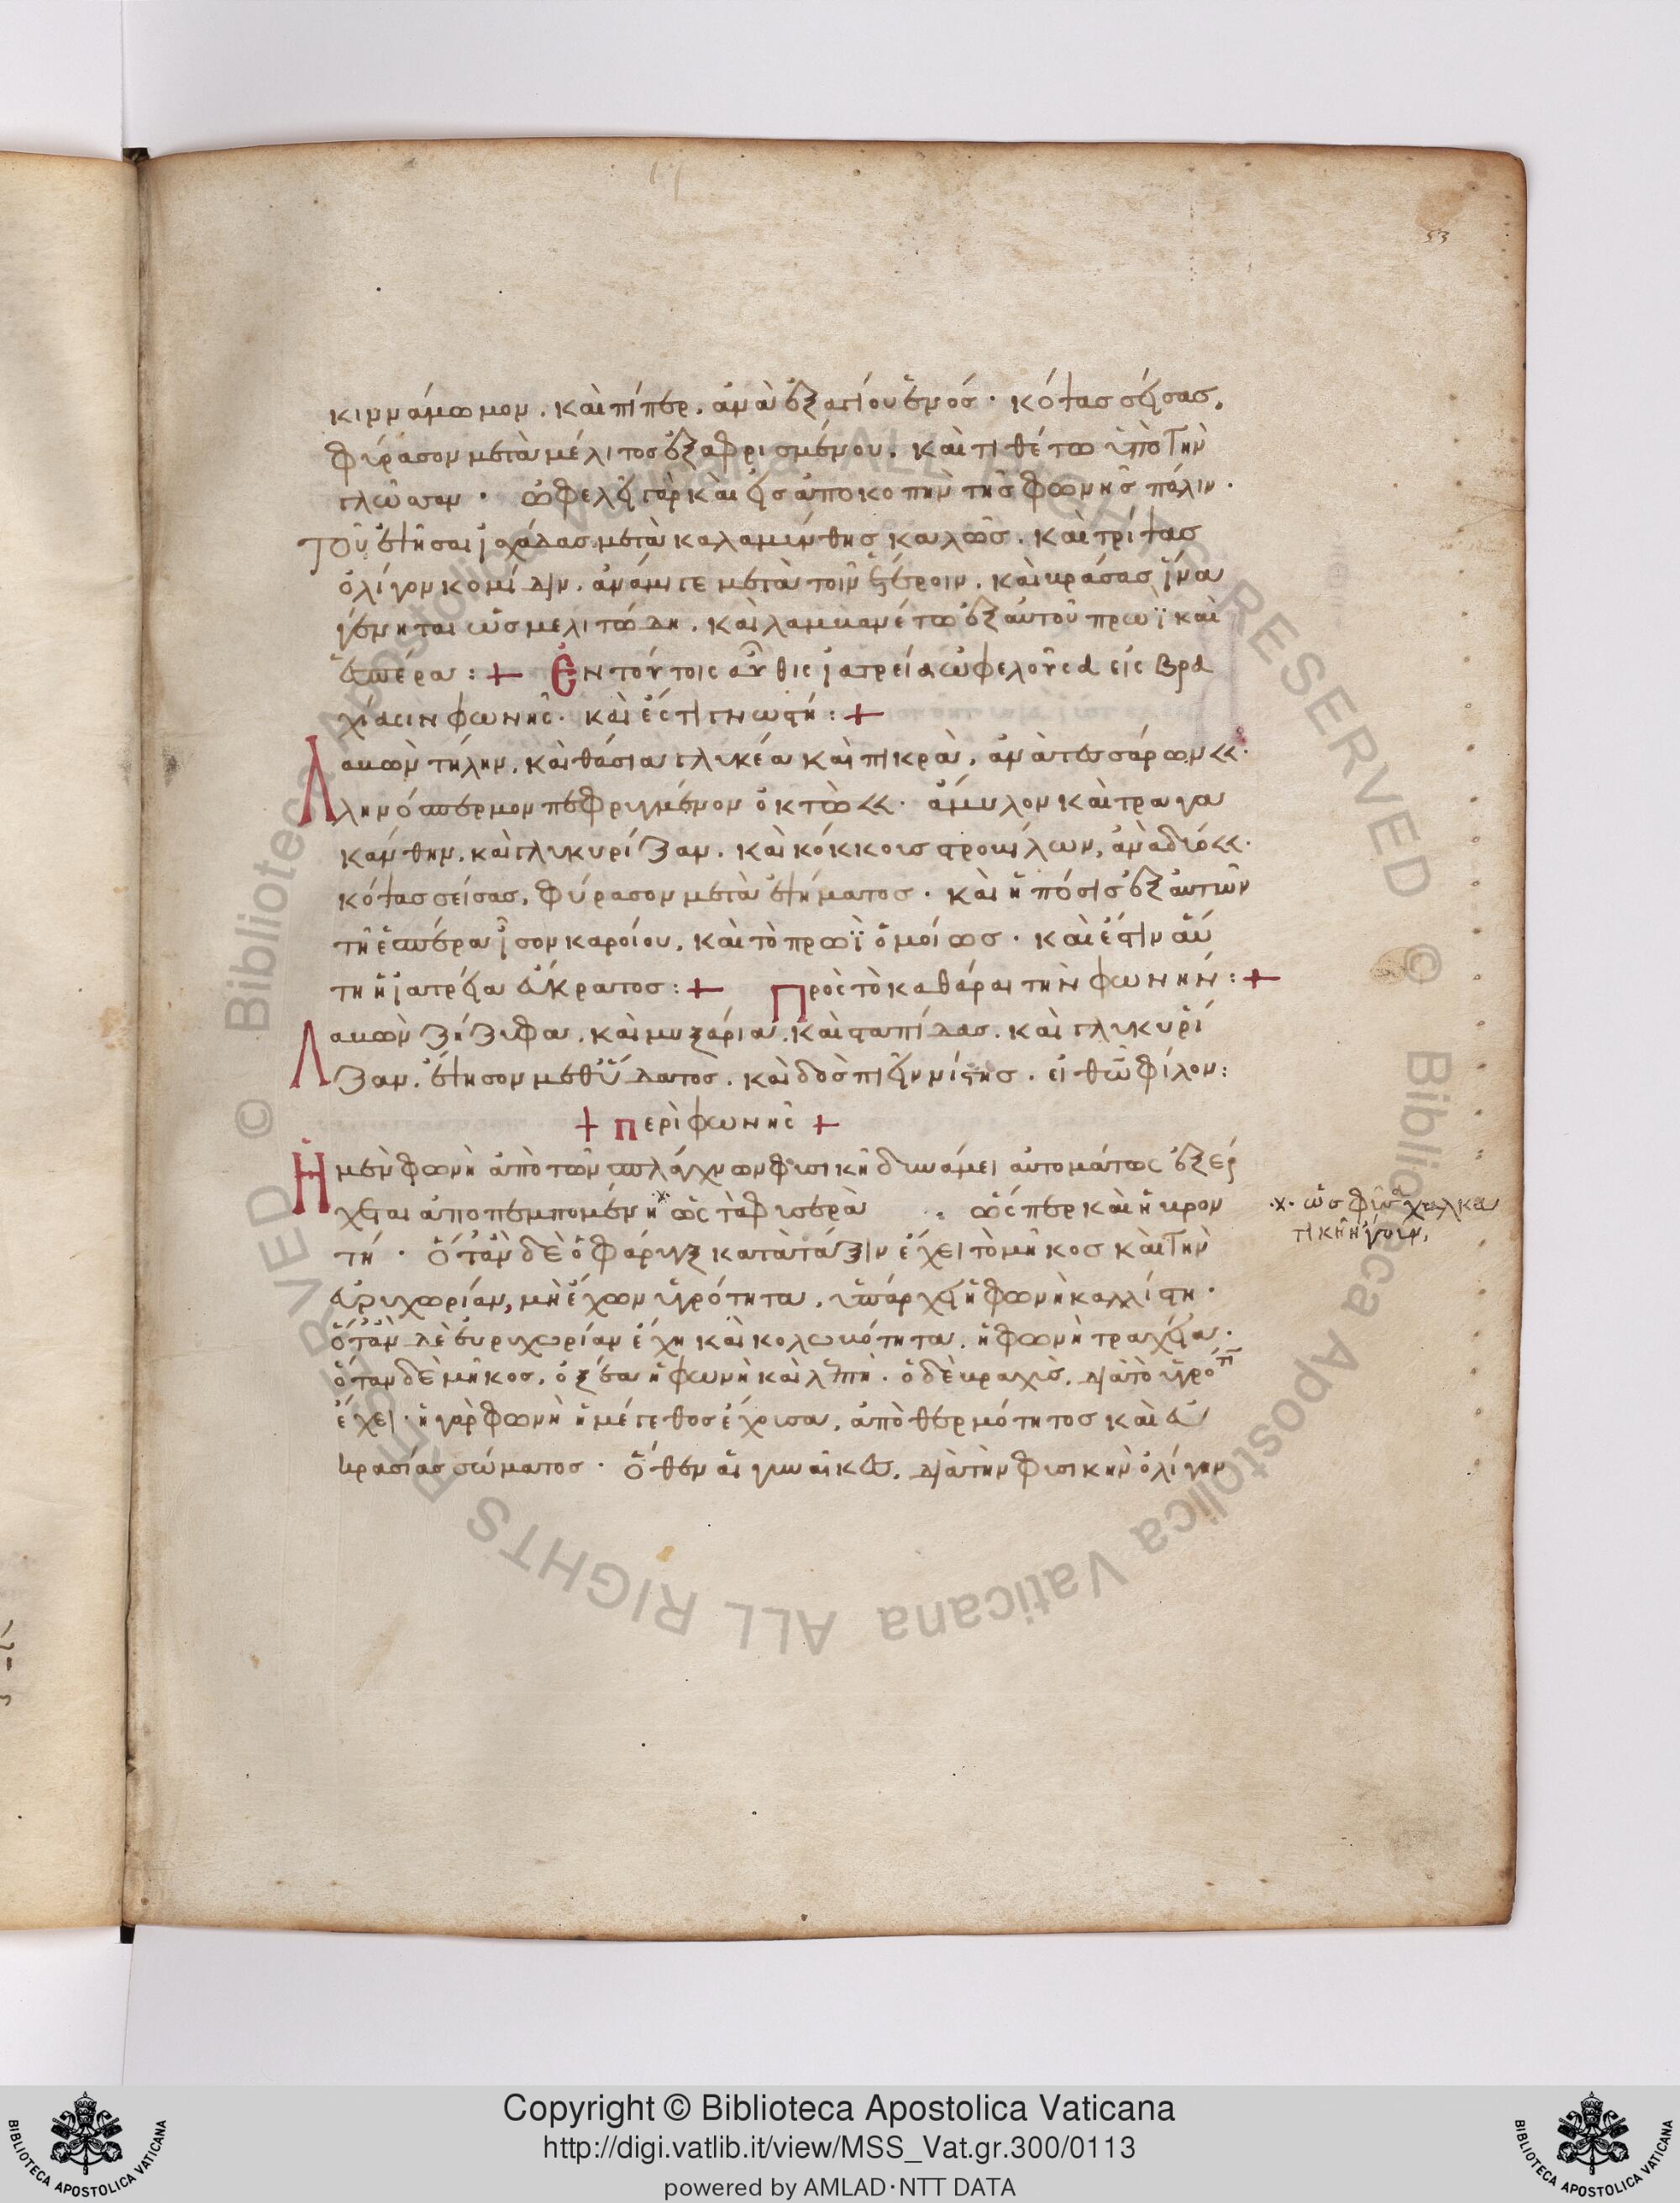 53
κινναμωμον. καὶ πίπερ. ἀνὰ ἑξαγίου ἑνός. κόψας σείσας,
φύρασον μετὰ μέλιτος ἐξαφρισμένου. καὶ τιθέτω ὑπὸ τὴν
γλῶσσαν. ὠφελεῖ γὰρ καὶ εἰς ἀποκοπὴν τῆς φωνῆς πάλιν.
ἑψῆσαι ἰσχάδας μετὰ καλαμίνθης καλῶς. καὶ τρίψας
ὀλίγον κομίδην. ἀνάμιγε μετὰ τοῖν ἑτέροιν. καὶ κράσας ἵνα
γένηται ὡς μελιτώδη. καὶ λαμβανέτω ἐξ αὐτοῦ πρωῒ καὶ
ἑσπέρα: + Ἐν τούτοις αὖθις ἰατρεία ὠφελοῦσα εἰς βρα
χίασιν φωνῆς. καὶ ἔστι γνωστή: +
Λαβὼν τήλην. καὶ θάσια γλυκέα καὶ πικρὰ, ἀνὰ τεσσάρων <<.
λινόσπερμον πεφρυγμένον ὀκτὼ <<. ἄμυλον καὶ τραγα
κάνθην. καὶ γλυκυρίζαν. καὶ κόκκους στροβίλων, ἀνὰ δύο <<.
κόψας σείσας, φύρασον μετὰ ἑψήματος. καὶ ἡ πόσις ἐξ αὐτῶν
τῇ ἑσπέρα ἴσον καροίου. καὶ τὸ πρωῒ ὁμοίως. καὶ ἔστιν αὕ
τη ἡ ἰατρεία ἄκρατος: + Πρὸς τὸ καθάραι τὴν φωνήν: +
Λαβὼν ζήζυφα. καὶ μυξάρια. καὶ σταπίδας. καὶ γλυκυρί
ζαν. ἕψησον μεθ' ὕδατος. καὶ δὸς πιεῖν νίστης. εἰ θῶ φίλον:
+ περὶ φωνῆς +
Ἡ μὲν φωνὴ ἀπὸ τῶν σπλάγχνων φυσικῇ δυνάμει αὐτομάτως ἐξέρ
χεται ἀποπεμπομένη ὡς τὰ φυσερὰ . ὥσπερ καὶ ἡ βρον
τή. ὅταν δὲ ὁ φάρυγξ κατὰ τάξιν ἔχει τὸ μῆκος καὶ τὴν
εὐρυχωρίαν, μὴ ἔχων ὑγρότητα. ὑπάρχει ἡ φωνὴ καλλίστη.
ὅταν δὲ εὐρυχωρίαν ἔχη καὶ κολοβότητα. ἡ φωνὴ τραχεῖα.
ὅταν δὲ μῆκος. ὀξεῖα ἡ φωνὴ καὶ λεπτή. ὁ δὲ βραχὺς. διὰ τὸ ὑγρό
ἔχει. ἡ γὰρ φωνὴ ἡ μέγεθος ἔχουσα, ἀπὸ θερμότητος καὶ εὐ
κρασίας σώματος. ὅθεν αἱ γυναῖκες. διὰ τὴν φυσικὴν ὀλίγην
Copyright © Biblioteca Apostolica Vaticana
http://digi.vatlib.it/view/MSS_Vat.gr.300/0113
powered by AMLAD·NTT DATA
BIBLIOTECA APOSTOLICA VATICANA
BIBLIOTECA APOSTOLICA VATICANA
© Biblioteca Apostolica Vaticana ALL RIGHTS RESERVED
© Biblioteca Apostolica Vaticana ALL RIGHTS RESERVED